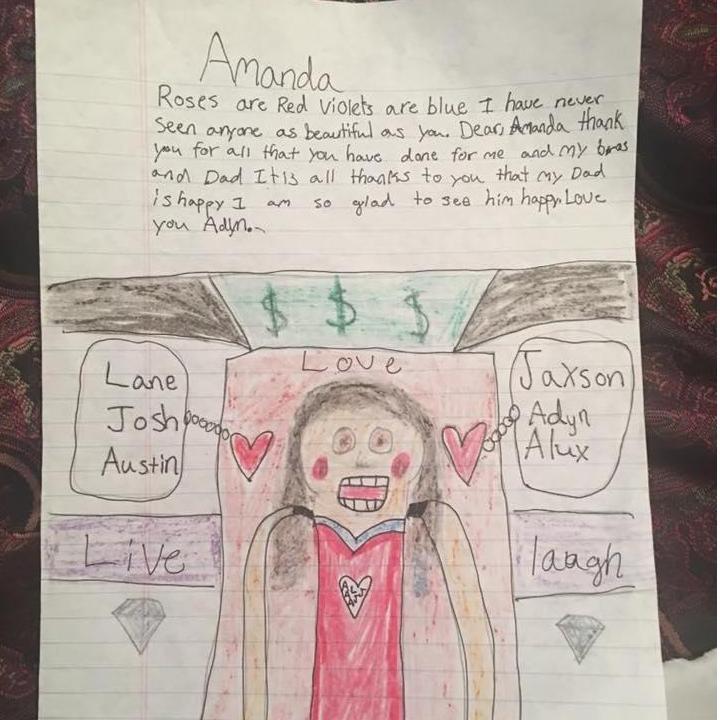 Amanda
Roses are Red Violets are blue I have never
Seen anyone as beautiful as you. Dear, Amanda thank
you for all that you have done for me and my bros
and Dad It is all thanks to you that my Dad
is happy I am so glad to see him happy. Love
you Adyn.
$ $ $
Love
Lane
Josh
Austin
Jaxson
Adyn
Alux
Live
laugh